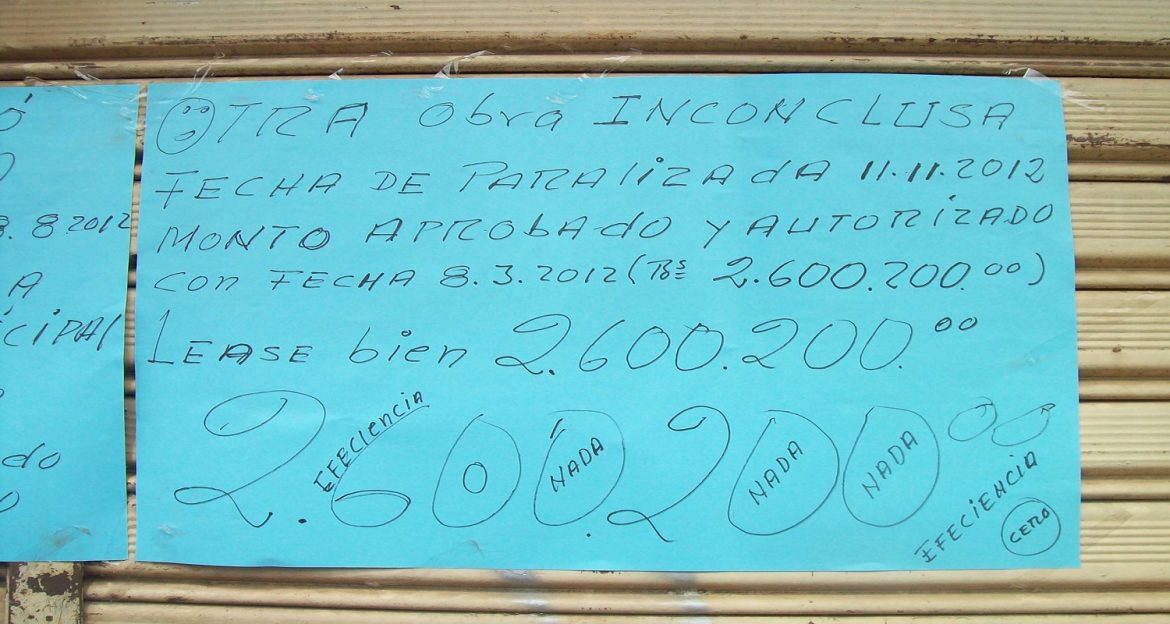 OTRA obra INCONCLUSA
FECHA DE PARALIZADA 11.11.2012
MONTO APROBADO Y AUTORIZADO
CON FECHA 8.3.2012 (Bs 2.600.200.00)
LEASE bien 2.600.200.00
2.600.200.00
EFECIENCIA
0
NADA
NADA
NADA
EFECIENCIA
CERO
8.2012
A
CIPAL
do